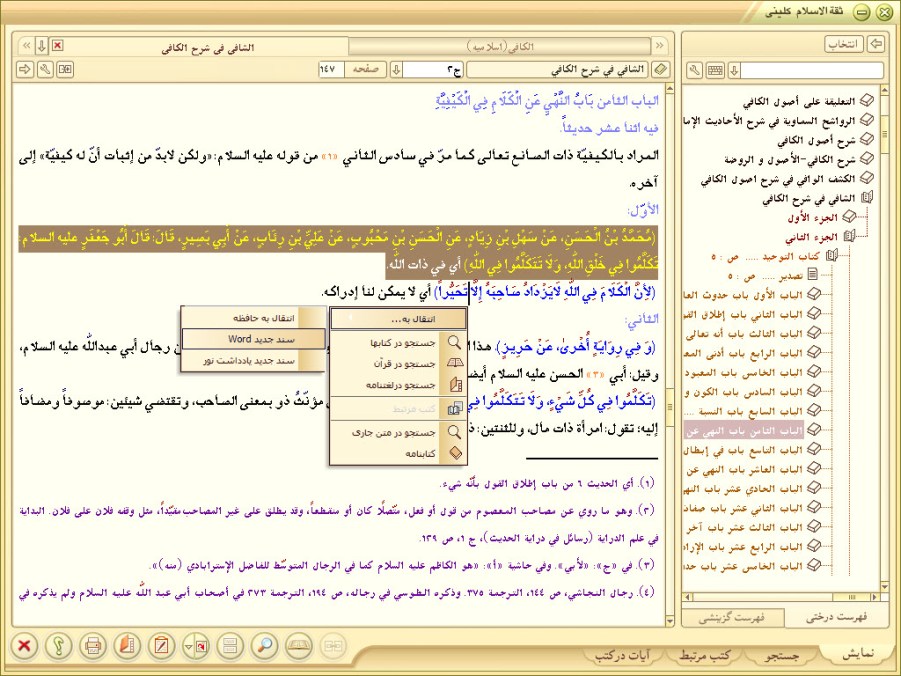 ثقة الاسلام كلينى
انتخاب
التعليقة على أصول الكافي
الرواشح السماوية في شرح الأحاديث الإما
شرح أصول الكافي
شرح الكافي-الأصول و الروضة
الكشف الوافي في شرح اصول الكافي
الشافي في شرح الكافي
الجزء الأول
الجزء الثاني
كتاب التوحيد .... ص : ٥
تصدير .... ص : ٥
الباب الأول باب حدوث العا
الباب الثاني باب إطلاق القو
الباب الثالث باب أنه تعالى
الباب الرابع باب أدنى المع
الباب الخامس باب المعبود
الباب السادس باب الكون و
الباب السابع باب النسبة ....
الباب الثامن باب النهي عن
الباب التاسع باب في إبطال
الباب العاشر باب النهي عن
الباب الحادي عشر باب النه
الباب الثاني عشر باب صفات
الباب الثالث عشر باب آخر
الباب الرابع عشر باب الإرا
الباب الخامس عشر باب حد
فهرست درختی
فهرست گزینشی
الكافي(اسلاميه)
الشافي في شرح الكافي
الشافي في شرح الكافي
ج٢
صفحه
١٤٧
الباب الثامن بَابُ النَّهْيِ عَنِ الْكَلَامِ فِي الْكَيْفِيَّةِ
فيه اثنا عشر حديثاً.
المراد بالكيفيّة ذات الصانع تعالى كما مرّ في سادس الثاني «٦» من قوله عليه السلام: «ولكن لابدّ من إثبات أنّ له كيفيّة» إلى
آخره.
الأوّل:
(مُحَمَّدُ بْنُ الْحَسَنِ، عَنْ سَهْلِ بْنِ زِيَادٍ، عَنِ الْحَسَنِ بْنِ مَحْبُوبٍ، عَنْ عَلِيِّ بْنِ رِئَابٍ، عَنْ أَبِي بَصِيرٍ، قَالَ: قَالَ أَبُو جَعْفَرٍ عليه السلام:
تَكَلَّمُوا فِي خَلْقِ اللّهِ، وَلَا تَتَكَلَّمُوا فِي اللّهِ) أي في ذات اللّه.
(لِأَنَّ الْكَلَامَ فِي اللّهِ لَايَزْدَادُ صَاحِبَهُ إِلَّا تَحَيُّراً) أي لا يمكن لنا إدراكه.
الثاني:
(وَ فِي رِوَايَةٍ أُخْرى، عَنْ حَرِيزٍ). هذا
ن رجال أبي عبدالله عليه السلام،
وقيل: أبي «٣» الحسن عليه السلام أيض
(تَكَلَّمُوا فِي كُلِّ شَيْءٍ، وَلَا تَتَكَلَّمُوا فِي
مؤنّث ذو بمعنى الصاحب، وتقتضي شيئين: موصوفاً ومضافاً
إليه؛ تقول: امرأة ذات مال، وللثنتين: ذ
(١). أي الحديث ٦ من باب إطلاق القول بأنّه شيء.
(٢). وهو ما روي عن مصاحب المعصوم من قول أو فعل، متّصلًا كان أو منقطعاً، وقد يطلق على غير المصاحب مقيّداً، مثل وقفه فلان على فلان. البداية
في علم الدراية (رسائل في دراية الحديث)، ج ١، ص ١٣٩.
(٣). في «ج»: «لأبي». وفي حاشية «أ»: «هو الكاظم عليه السلام كما في الرجال المتوسّط للفاضل الإسترابادي (منه)».
(٤). رجال النجاشي، ص ١٤٤، الترجمة ٣٧٥. وذكره الطوسي في رجاله، ص ١٩٤، الترجمة ٢٧٣ في أصحاب أبي عبد اللّه عليه السلام ولم يذكره في
انتقال به...
جستجو در کتابها
جستجو در قرآن
جستجو درلغتنامه
کتب مرتبط
جستجو در متن جاری
کتابنامه
انتقال به حافظه
سند جدید Word
سند جدید یادداشت نور
نمایش
جستجو
کتب مرتبط
آیات درکتب